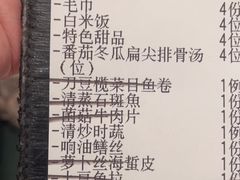 -毛巾 4份
-白米饭 4位
-特色甜品 4位
-番茄冬瓜扁尖排骨汤 4位
(位)
-刀豆榄菜目鱼卷 1例
-清蒸石斑魚 1份
-南菇牛肉片 1例
-清炒时蔬 1例
-响油鳝丝 1例
-萝卜丝海蜇皮 1例